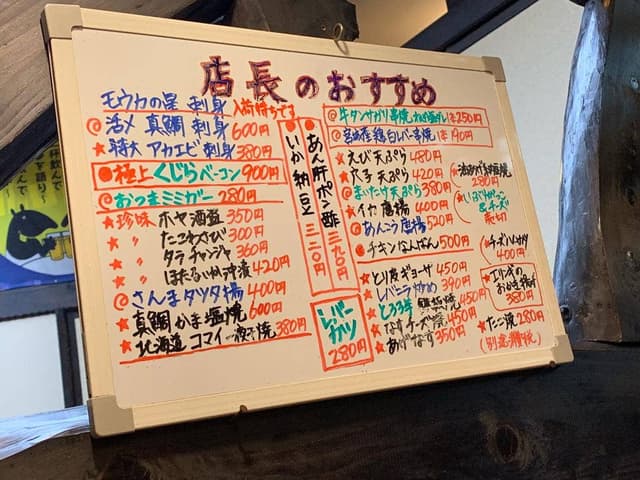 店長のおすすめ
モウカの星 刺身 入荷待ちです
◎活〆 真鯛 刺身 600円
★特大 アカエビ 刺身 380円
●極上 くじらベーコン 900円
◎おつまミミガー 280円
★珍味 ホヤ酒盗 350円
★ 〃 たこわさび 300円
★ 〃 タラチャンジャ 360円
★ 〃 ほたるいか沖漬 420円
◎さんまタツタ揚 400円
★真鯛かま塩焼 600円
★北海道コマイ一夜干焼 380円
●いか納豆 三二〇円
●あん肝ポン酢 三九〇円
レバーカツ 280円
◎牛タンサガリ串焼 ねぎ塩ダレ 1本250円
◎宮崎産鶏白レバー串焼 1本190円
★えび天ぷら 480円
★穴子天ぷら 420円
◎まいたけ天ぷら 380円
★イカ唐揚 400円
◎あんこう唐揚 520円
●チキンなんばん 500円
★とり皮ギョーザ 450円
★レバニラ炒め 390円
★とろろ芋 鉄板焼 450円
★なすチーズ焼 450円
★あげなす 350円
280円
★いぶりがっこ&チーズ
売切
★チーズハムカツ 400円
380円
★たこ焼 280円